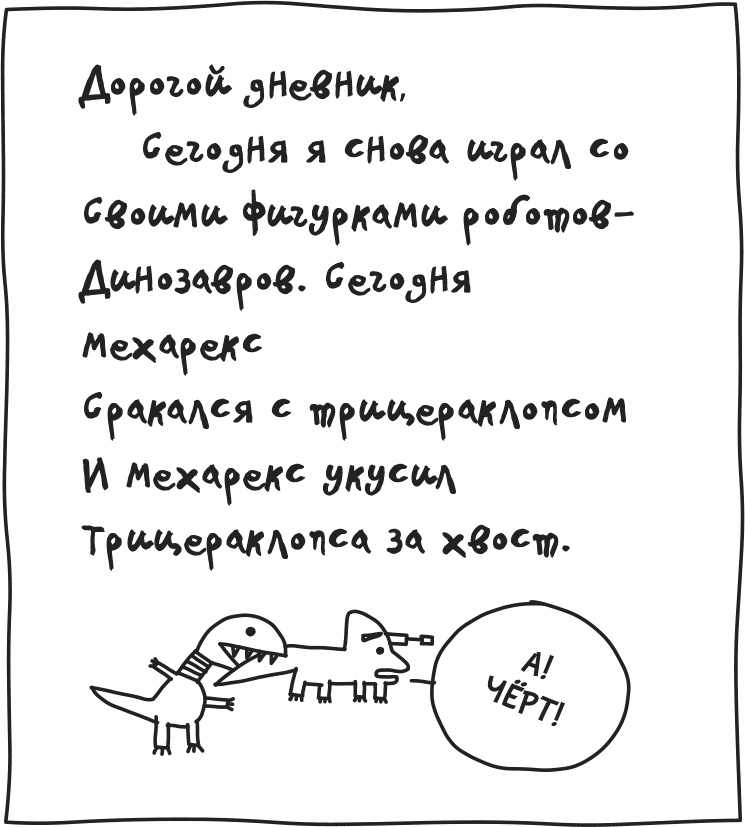 Дорогой дневник,
Сегодня я снова играл со
Своими фигурками роботов-
Динозавров. Сегодня
мехарекс
Сракался с трицераклопсом
И мехарекс укусил
Трицераклопса за хвост.
А!
ЧЁРТ!